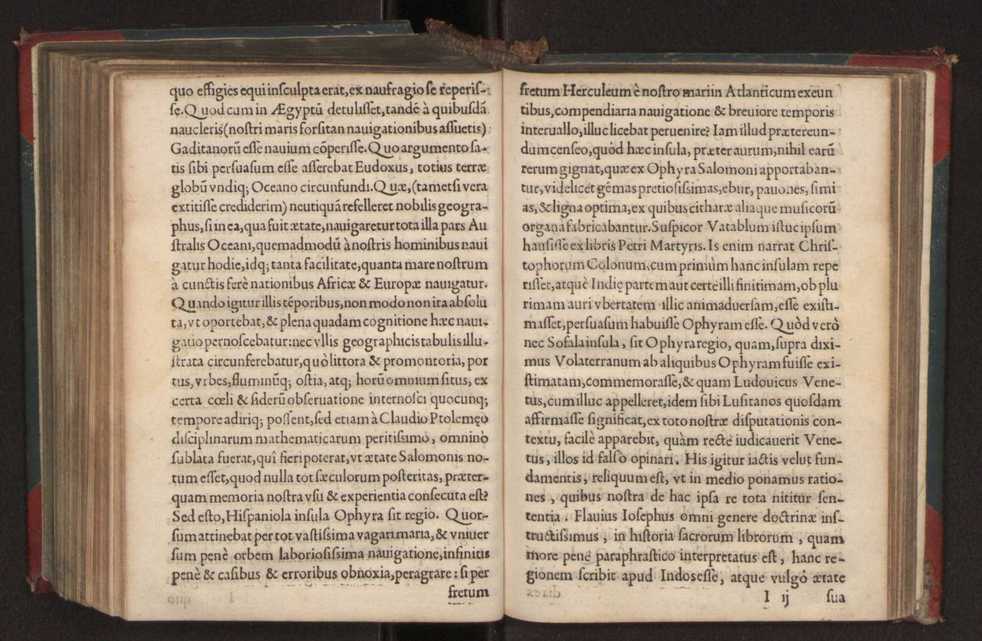 quo effigies equi insculpta erat, ex naufragio se reperis-
se. Quod cum in Ægyptũ detulisset, tandẽ à quibusdã
naucleris (nostri maris forsitan nauigationibus assuetis)
Gaditanorũ esse nauium cõperisse. Quo argumento sa-
tis sibi persuasum esse asserebat Eudoxus, totius terræ
globũ vndiq; Oceano circunfundi. Quæ, (tametsi vera
extitisse crediderim) neutiquã refelleret nobilis geogra-
phus, si in ea, qua fuit ætate, nauigaretur tota illa pars Au
stralis Oceani, quemadmodũ à nostris hominibus naui
gatur hodie, idq; tanta facilitate, quanta mare nostrum
à cunctis ferè nationibus Africæ & Europæ nauigatur.
Quando igitur illis tẽporibus, non modo non ita absolu
ta, vt oportebat, & plena quadam cognitione hæc naui-
gatio pernoscebatur: nec vllis geographicis tabulis illu-
strata circunferebatur, quò littora & promontoria, por
tus, vrbes, fluminũq; ostia, atq; horũ omnium situs, ex
certa cœli & siderũ obseruatione internosci quocunq;
tempore adiriq; possent, sed etiam à Claudio Ptolemęo
disciplinarum mathematicarum peritissimo, omnino
sublata fuerat, quî fieri poterat, vt ætate Salomonis no-
tum esset, quod nulla tot sæculorum posteritas, præter-
quam memoria nostra vsu & experientia consecuta est?
Sed esto, Hispaniola insula Ophyra sit regio. Quor-
sum attinebat per tot vastissima vagari maria, & vniuer
sum penè orbem laboriosissima nauigatione, infinitis
penè & casibus & erroribus obnoxia, peragrare: si per
fretum
fretum Herculeum è nostro mari in Atlanticum exeun
tibus, compendiaria nauigatione & breuiore temporis
interuallo, illuc licebat peruenire? Iam illud prætereun-
dum censeo, quòd hæc insula, præter aurum, nihil earũ
rerum gignat, quæ ex Ophyra Salomoni apportaban-
tur, videlicet gẽmas pretiosissimas, ebur, pauones, simi
as, & ligna optima, ex quibus citharæ aliaque musicorũ
organa fabricabantur. Suspicor Vatablum istuc ipsum
hausisse ex libris Petri Martyris. Is enim narrat Chris-
tophorum Colonum, cum primùm hanc insulam repe
risset, atquè Indię partem aut certe illi finitimam, ob plu
rimam auri vbertatem illic animaduersam, esse existi-
masset, persuasum habuisse Ophyram esse. Quòd verò
nec Sofala insula, sit Ophyra regio, quam, supra dixi-
mus Volaterranum ab aliquibus Ophyram fuisse exi-
stimatam, commemorasse, & quam Ludouicus Vene-
tus, cum illuc appelleret, idem sibi Lusitanos quosdam
affirmasse significat, ex toto nostræ disputationis con-
textu, facilè apparebit, quàm rectè iudicauerit Vene-
tus, illos id falso opinari. His igitur iactis velut fun-
damentis, reliquum est, vt in medio ponamus ratio-
nes, quibus nostra de hac ipsa re tota nititur sen-
tentia. Flauius Iosephus omni genere doctrinæ ins-
tructissimus, in historia sacrorum librorum, quam
more penè paraphrastico interpretatus est, hanc re-
gionem scribit apud Indos esse, atque vulgò ætate
I ij sua